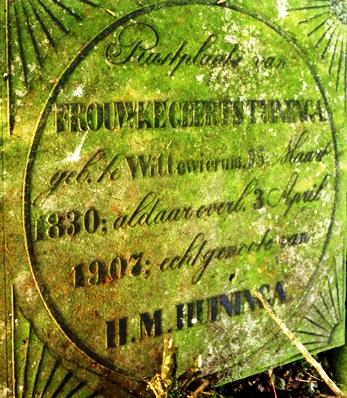 Rustplaats van
TROUWKE GEERTS TURINGA
geb. te Wittewierum, 15 Maart
1830; aldaar overl. 3 April
1907; echtgenoote van
H.M. HUININGA